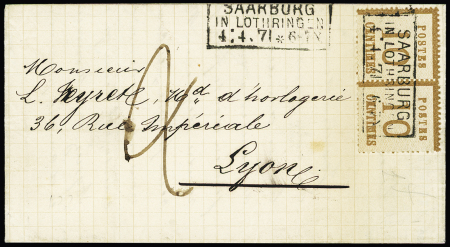 SAARBURG
IN LOTHRINGEN
4. 4. 71 * 6-7N
Monsieur
L. Neyret, Md d'horlogerie
36, Rue Impériale
Lyon
2
POSTES
10
CENTIMES
POSTES
10
CENTIMES
SAARBURG
IN LOTHRINGEN
4. 4. 71